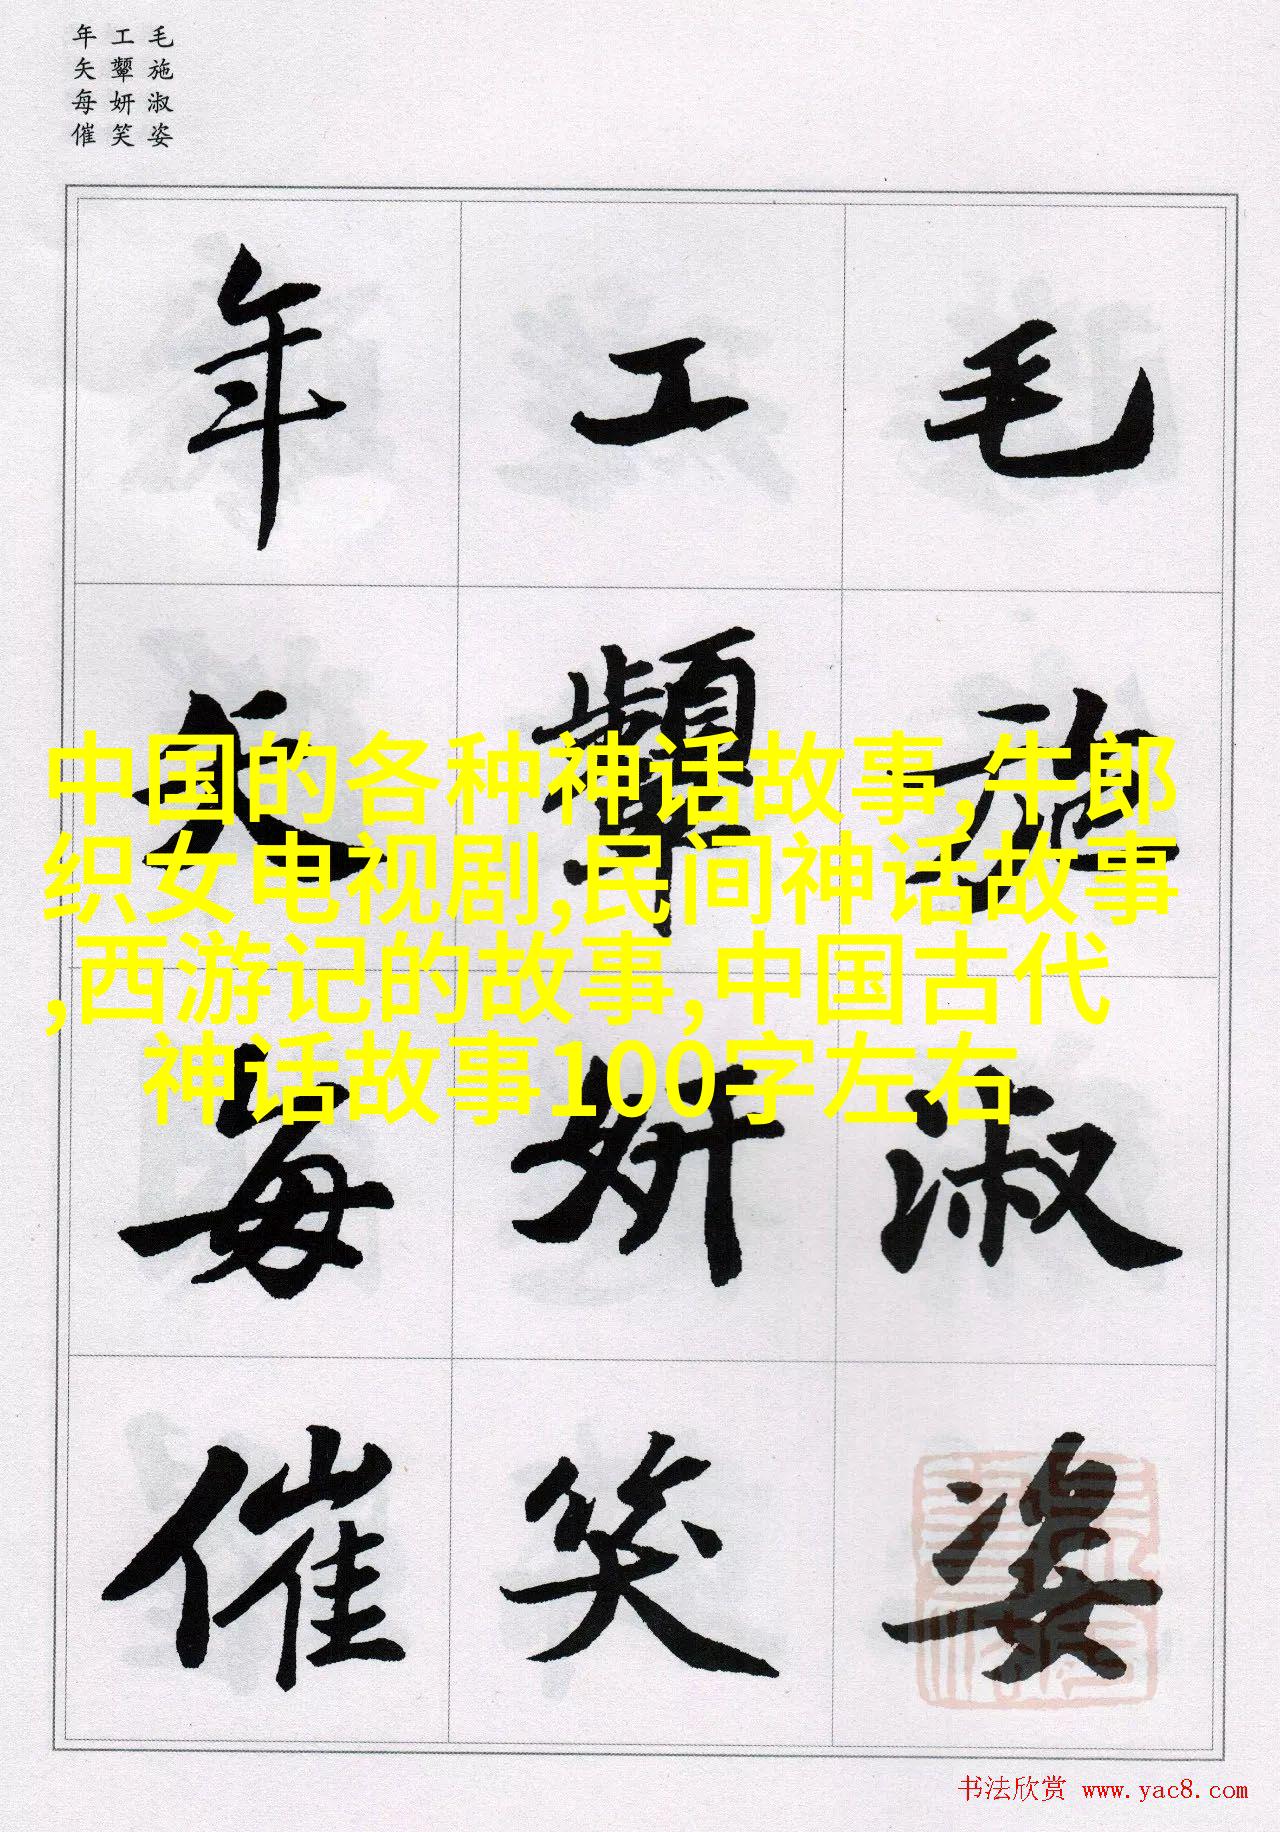 年工毛
矢颦施
每妍淑
催笑姿
年工毛
矢颦施
中国的各种神话故事,牛郎
织女电视剧,民间神话故事
,西游记的故事,中国古代
神话故事100字左右
每妍淑
催笑姿
书法欣赏 www.yac8.com